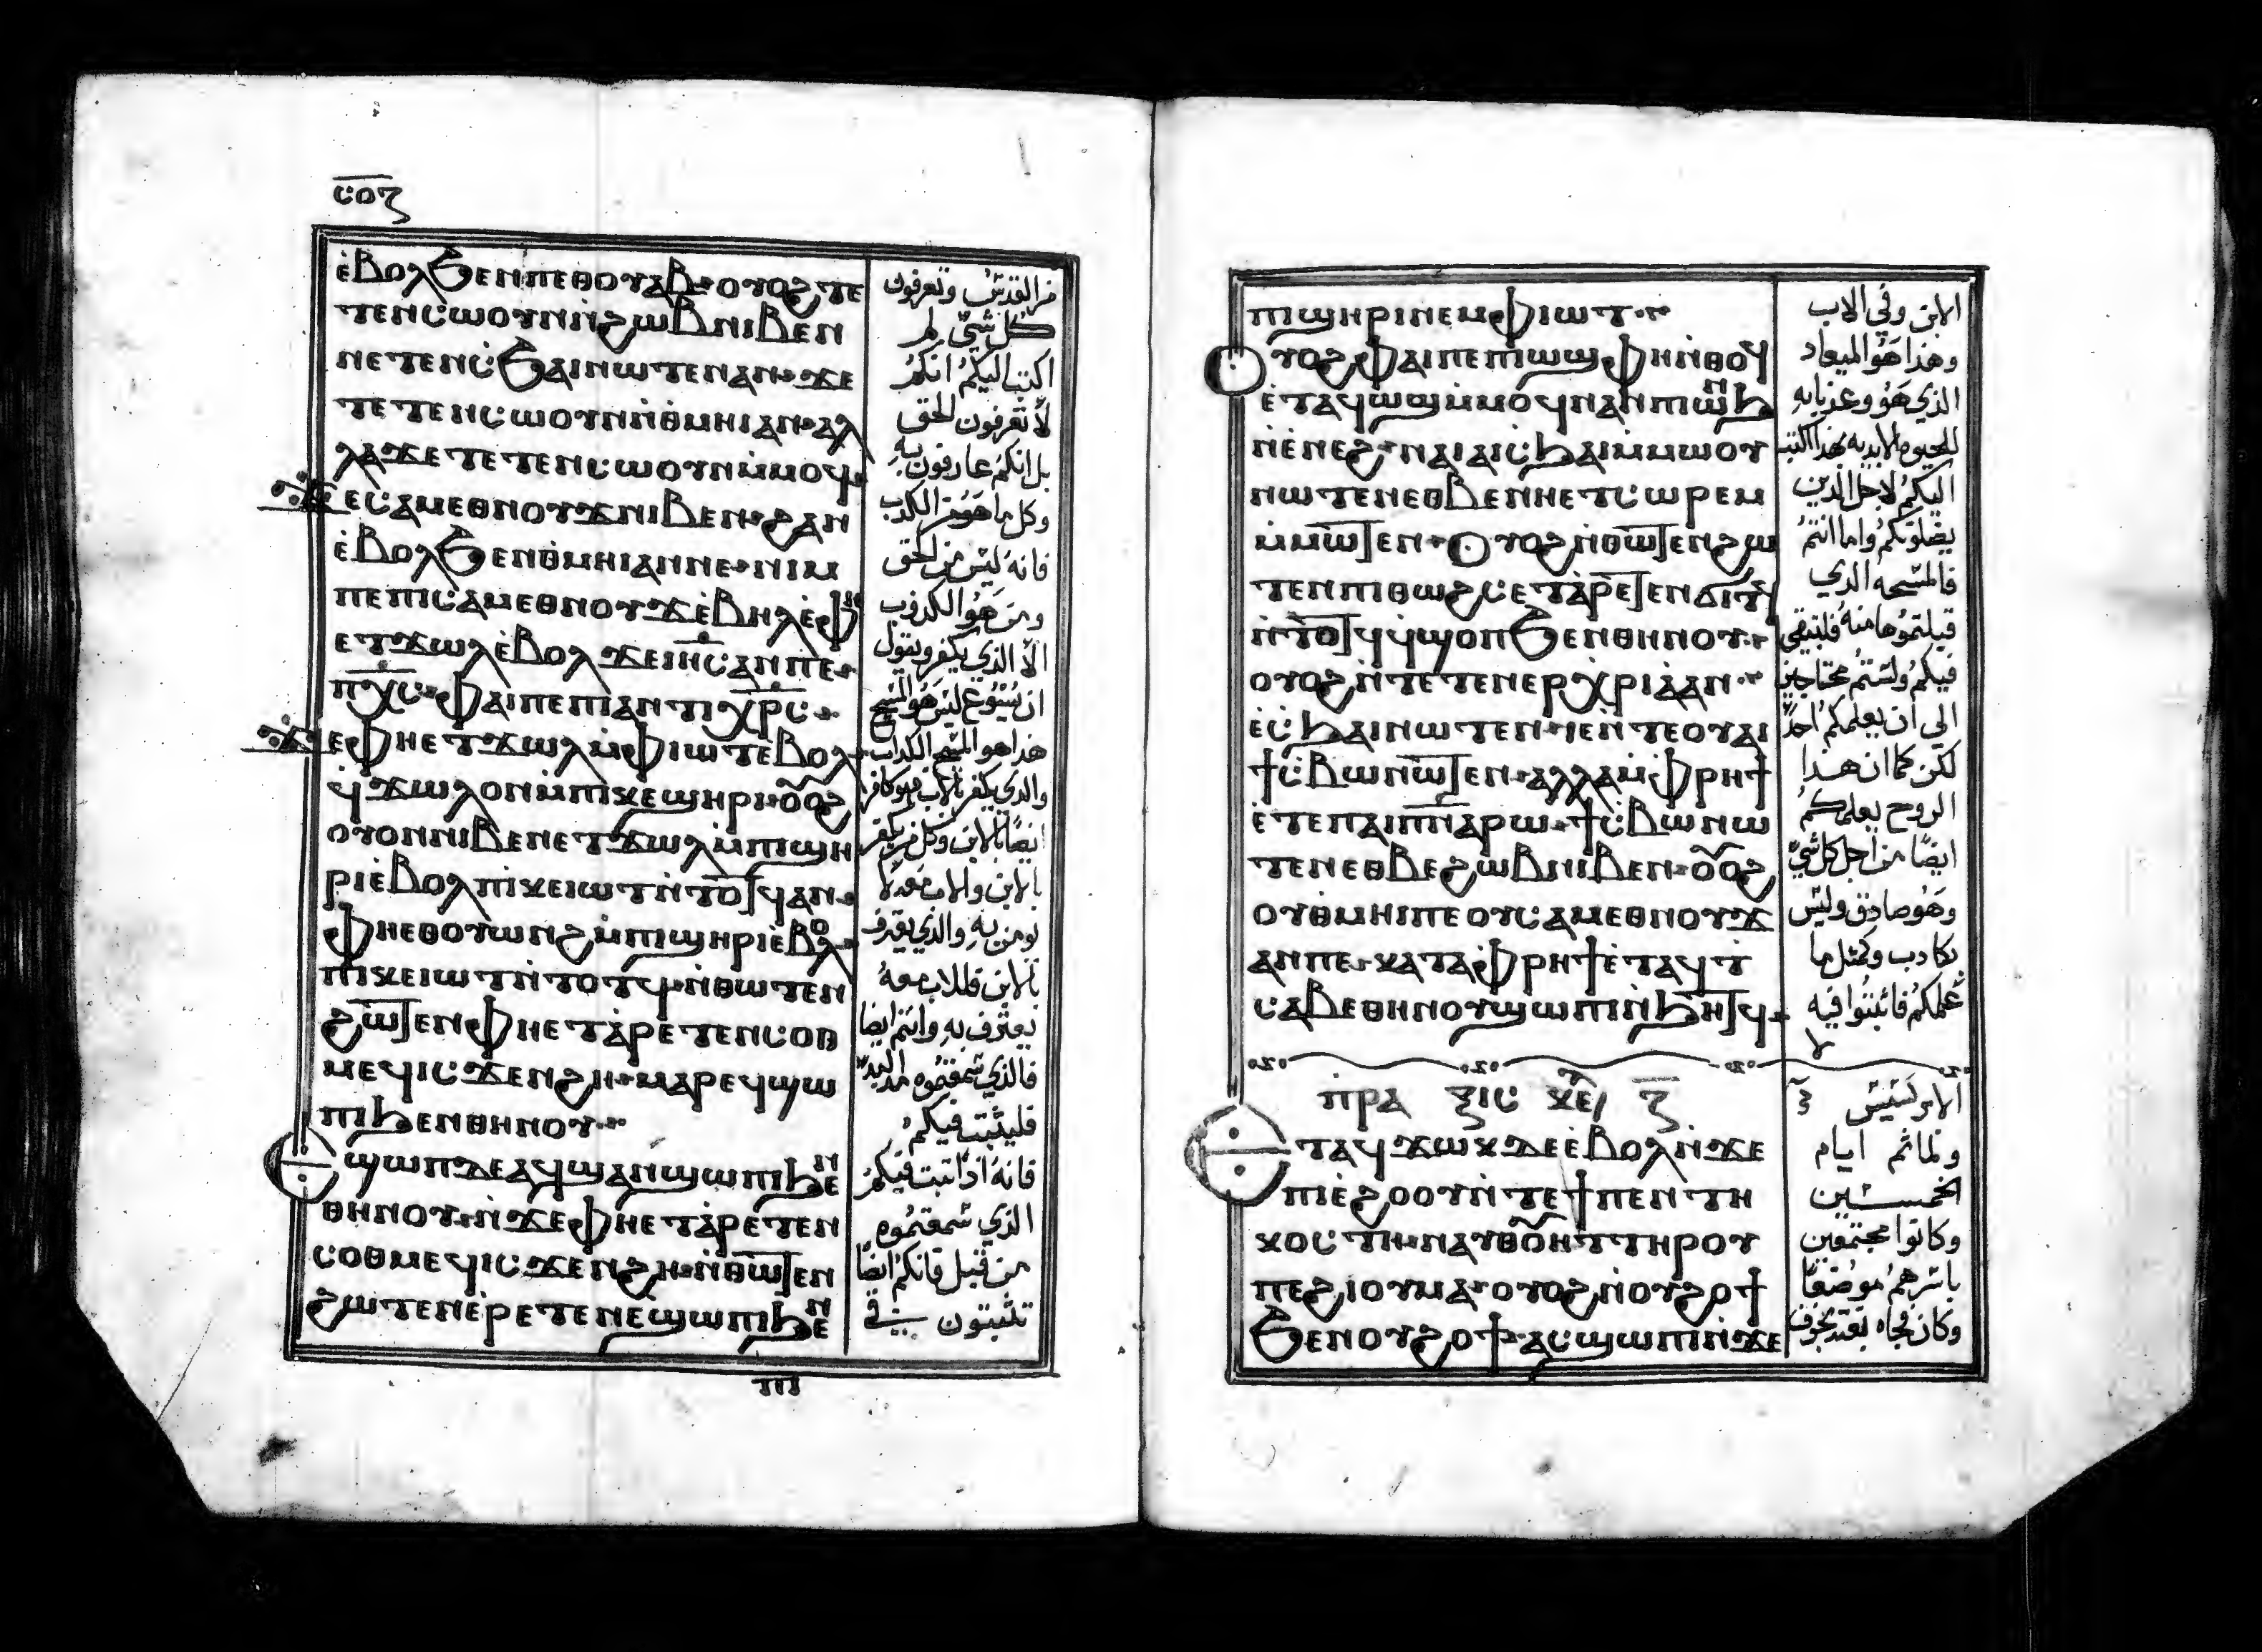 ⲥⲟⲍ
ⲉ̀ⲃⲟⲗϧⲉⲛⲡⲉⲑⲟⲩⲁⲃ ⲟⲩⲟϩⲧⲉ
ⲧⲉⲛⲥⲱⲟⲩⲛⲛ̀ϩⲱⲃⲛⲓⲃⲉⲛ
ⲛⲉⲧⲉⲛⲥ̀ϧⲁⲓⲛⲱⲧⲉⲛⲁⲛ ϫⲉ
ⲧⲉⲧⲉⲛⲥⲱⲟⲩⲛⲛ̀ⲑⲙⲏⲓⲁⲛ ⲁⲗ
ⲗⲁϫⲉⲧⲉⲧⲉⲛⲥⲱⲟⲩⲛⲙ̀ⲙⲟϥ
ϫⲉⲥⲁⲙⲉⲑⲛⲟⲩϫⲛⲓⲃⲉⲛ ϩⲁⲛ
ⲉ̀ⲃⲟⲗϧⲉⲛⲑⲙⲏⲓⲁⲛⲛⲉ ⲛⲓⲙ
ⲡⲉⲡⲓⲥⲁⲙⲉⲑⲛⲟⲩϫⲉ̀ⲃⲏⲗⲉ̀ⲫⲏ
ⲉⲧϫⲱⲗⲉ̀ⲃⲟⲗ ϫⲉⲓⲏⲥⲁⲛⲡⲉ
ⲡⲭⲥ ⲫⲁⲓⲡⲉⲡⲓⲁⲛⲧⲓⲭⲣⲥ
ϫⲉⲫⲏⲉⲧϫⲱⲗⲙ̀ⲫⲓⲱⲧⲉⲃⲟⲗ
ϥ̀ϫⲱⲗⲟⲛⲙ̀ⲡⲓⲕⲉϣⲏⲣⲓ ⲟⲟϩ
ⲟⲩⲟⲛⲛⲓⲃⲉⲛⲉⲧϫⲱⲗⲙ̀ⲡϣⲏ
ⲣⲓⲉ̀ⲃⲟⲗⲡⲓⲕⲉⲓⲱⲧⲛ̀ⲧⲟⲧϥⲁⲛ
ⲫⲏⲉⲑⲟⲩⲱⲛϩⲙ̀ⲡⲓϣⲏⲣⲓⲉ̀ⲃⲟⲗ
ⲡⲓⲕⲉⲓⲱⲧⲛ̀ⲧⲟⲧϥ ⲛ̀ⲑⲱⲧⲉⲛ
ϩⲱⲧⲉⲛⲫⲏⲉⲧⲁ̀ⲣⲉⲧⲉⲛⲥⲟⲑ
ⲙⲉϥⲓⲥϫⲉⲛϩⲏ ⲙⲁⲣⲉϥϣⲱ
ⲡⲓϧⲉⲛⲑⲏⲛⲟⲩ
ϣⲱⲡⲇⲉⲁϥϣⲁⲛϣⲱⲡⲓϧⲉⲛ
ⲑⲏⲛⲟⲩ ⲛ̀ϫⲉⲫⲏⲉⲧⲁ̀ⲣⲉⲧⲉⲛ
ⲥⲟⲑⲙⲉϥⲓⲥϫⲉⲛϩⲏ ⲛ̀ⲑⲱⲧⲉⲛ
ϩⲱⲧⲉⲛⲉ̀ⲣⲉⲧⲉⲛⲉϣⲱⲡⲓϧⲉⲛ
ⲡⲓ
من القدس وتعرفون
كل شي لم
اكتب اليكم انكم
لا تعرفون الحق
بل انكم عارفون به
وكل ما هو من الكدب
فانه ليس من الحق
ومن هو الكدوب
الا الذي يكفر ويقول
ان يسوع ليس هو المسيح
هذا هو المسيح الكداب
والذي يكفر بالاب فهو كافر
ايضا بالابن وكل من يكفر
بالابن والاب معه لا
يومن به والذي يعترف
بالابن فالاب معه
يعترف به وانتم ايضا
فالذي سمعتموه مند البدء
فليثبت فيكم
فانه ادا تبت فيكم
الذي سمعتموه
من قبل فانكم ايضا
تثبتون في
ⲡⲓϣⲏⲣⲓⲛⲉⲙⲫⲓⲱⲧ
ⲟⲩⲟϩⲫⲁⲓⲡⲉⲡⲓⲱϣⲫⲏⲛ̀ⲑⲟϥ
ⲉ̀ⲧⲁϥⲱϣⲙ̀ⲙⲟϥⲛⲁⲛⲡⲓⲱⲛϧ
ⲛ̀ⲉ̀ⲛⲉϩ ⲛⲁⲓⲁⲓⲥϧⲁⲓⲙ̀ⲙⲱⲟⲩ
ⲛⲱⲧⲉⲛⲉⲑⲃⲉⲛⲏⲉⲧⲥⲱⲣⲉⲙ
ⲙ̀ⲙⲱⲧⲉⲛ ⲟⲩⲟϩⲛ̀ⲑⲱⲧⲉⲛϩⲱ
ⲧⲉⲛⲡⲓⲑⲱϩⲥⲉⲧⲁ̀ⲣⲉⲧⲉⲛϭⲓⲧϥ
ⲛ̀ⲧⲟⲧϥϥ̀ϣⲟⲡϧⲉⲛⲑⲏⲛⲟⲩ
ⲟⲩⲟϩⲛ̀ⲧⲉⲧⲉⲛⲉⲣⲭⲣⲓⲁⲁⲛ
ⲉ̀ⲥ̀ϧⲁⲓⲛⲱⲧⲉⲛ ⲓⲉⲛ̀ⲧⲉⲟⲩⲁⲓ
ϯⲥ̀ⲃⲱⲛⲱⲧⲉⲛ ⲁⲗⲗⲁⲙ̀ⲫⲣⲏϯ
ⲉ̀ⲧⲉⲡⲁⲓⲡⲛⲁⲣⲱ ϯⲥ̀ⲃⲱⲛⲱ
ⲧⲉⲛⲉⲑⲃⲉϩⲱⲃⲛⲓⲃⲉⲛ ⲟⲟϩ
ⲟⲩⲑⲙⲏⲓⲡⲉⲟⲩⲥⲁⲙⲉⲑⲛⲟⲩϫ
ⲁⲛⲡⲉ ⲕⲁⲧⲁⲫⲣⲏϯⲉ̀ⲧⲁϥⲧ
ⲥⲁⲃⲉⲑⲏⲛⲟⲩϣⲱⲡⲓⲛ̀ϧⲏⲧϥ
ⲡⲣⲁ ⲝⲓⲥ ⲕⲉ ⲍ
ⲉⲧⲁϥϫⲱⲕⲇⲉⲉ̀ⲃⲟⲗⲛ̀ϫⲉ
ⲡⲓⲉ̀ϩⲟⲟⲩⲛ̀ⲧⲉϯⲡⲉⲛⲧⲏ
ⲕⲟⲥⲧⲏ ⲛⲁⲩⲑⲟⲩⲏⲧⲧⲏⲣⲟⲩ
ⲡⲉϩⲓⲟⲩⲙⲁ ⲟⲩⲟϩⲛ̀ⲟⲩϩⲟϯ
ϧⲉⲛⲟⲩϩⲟϯ ⲁⲥϣⲱⲡⲓⲛ̀ϫⲉ
الابن وفي الاب
وهذا هو الميعاد
الذي هو وعدنا به
للحيوه الابديه بهذا اكتب
اليكم لاجل الدين
يضلونكم واما انتم
فالمسحه الدي
قبلتموها منه فلتبقي
فيكم ولستم محتاجين
الي ان يعلمكم احد
لكن كما ان هدا
الروح يعلمكم
ايضا من اجل كل شي
وهو صادق وليس
بكادب وكمثل ما
علمكم فاثبتوا فيه
الابركسيس
ولما تم ايام
الخمسين
وكانوا مجتمعين
باسرهم موضعا
وكان فجاه بغته بخوف